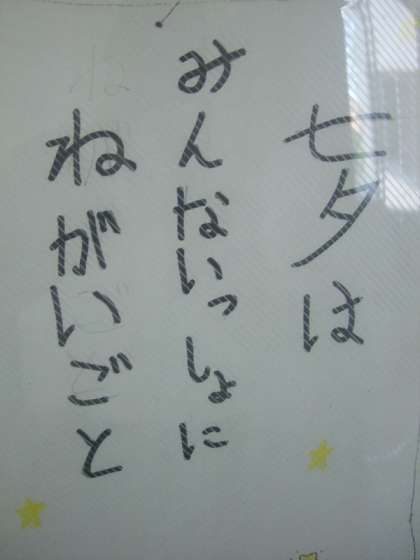 七夕は
みんないっしょに
ねがいごと